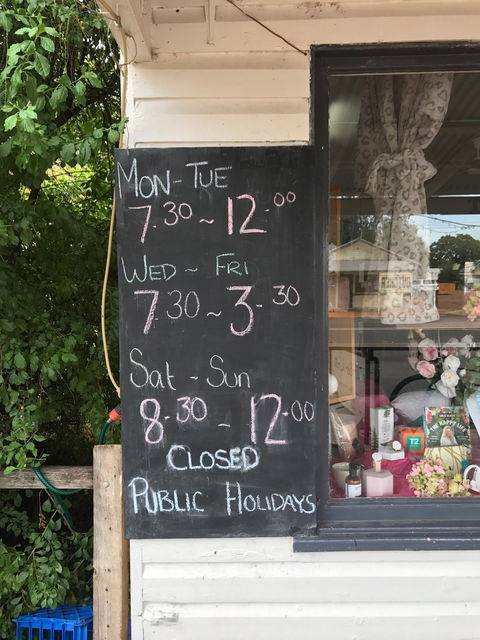 MON-TUE
7.30 ~ 12.00
WED ~ FRI
7.30 ~ 3.30
Sat - Sun
8.30 - 12.00
CLOSED
PUBLIC HOLIDAYS
T2